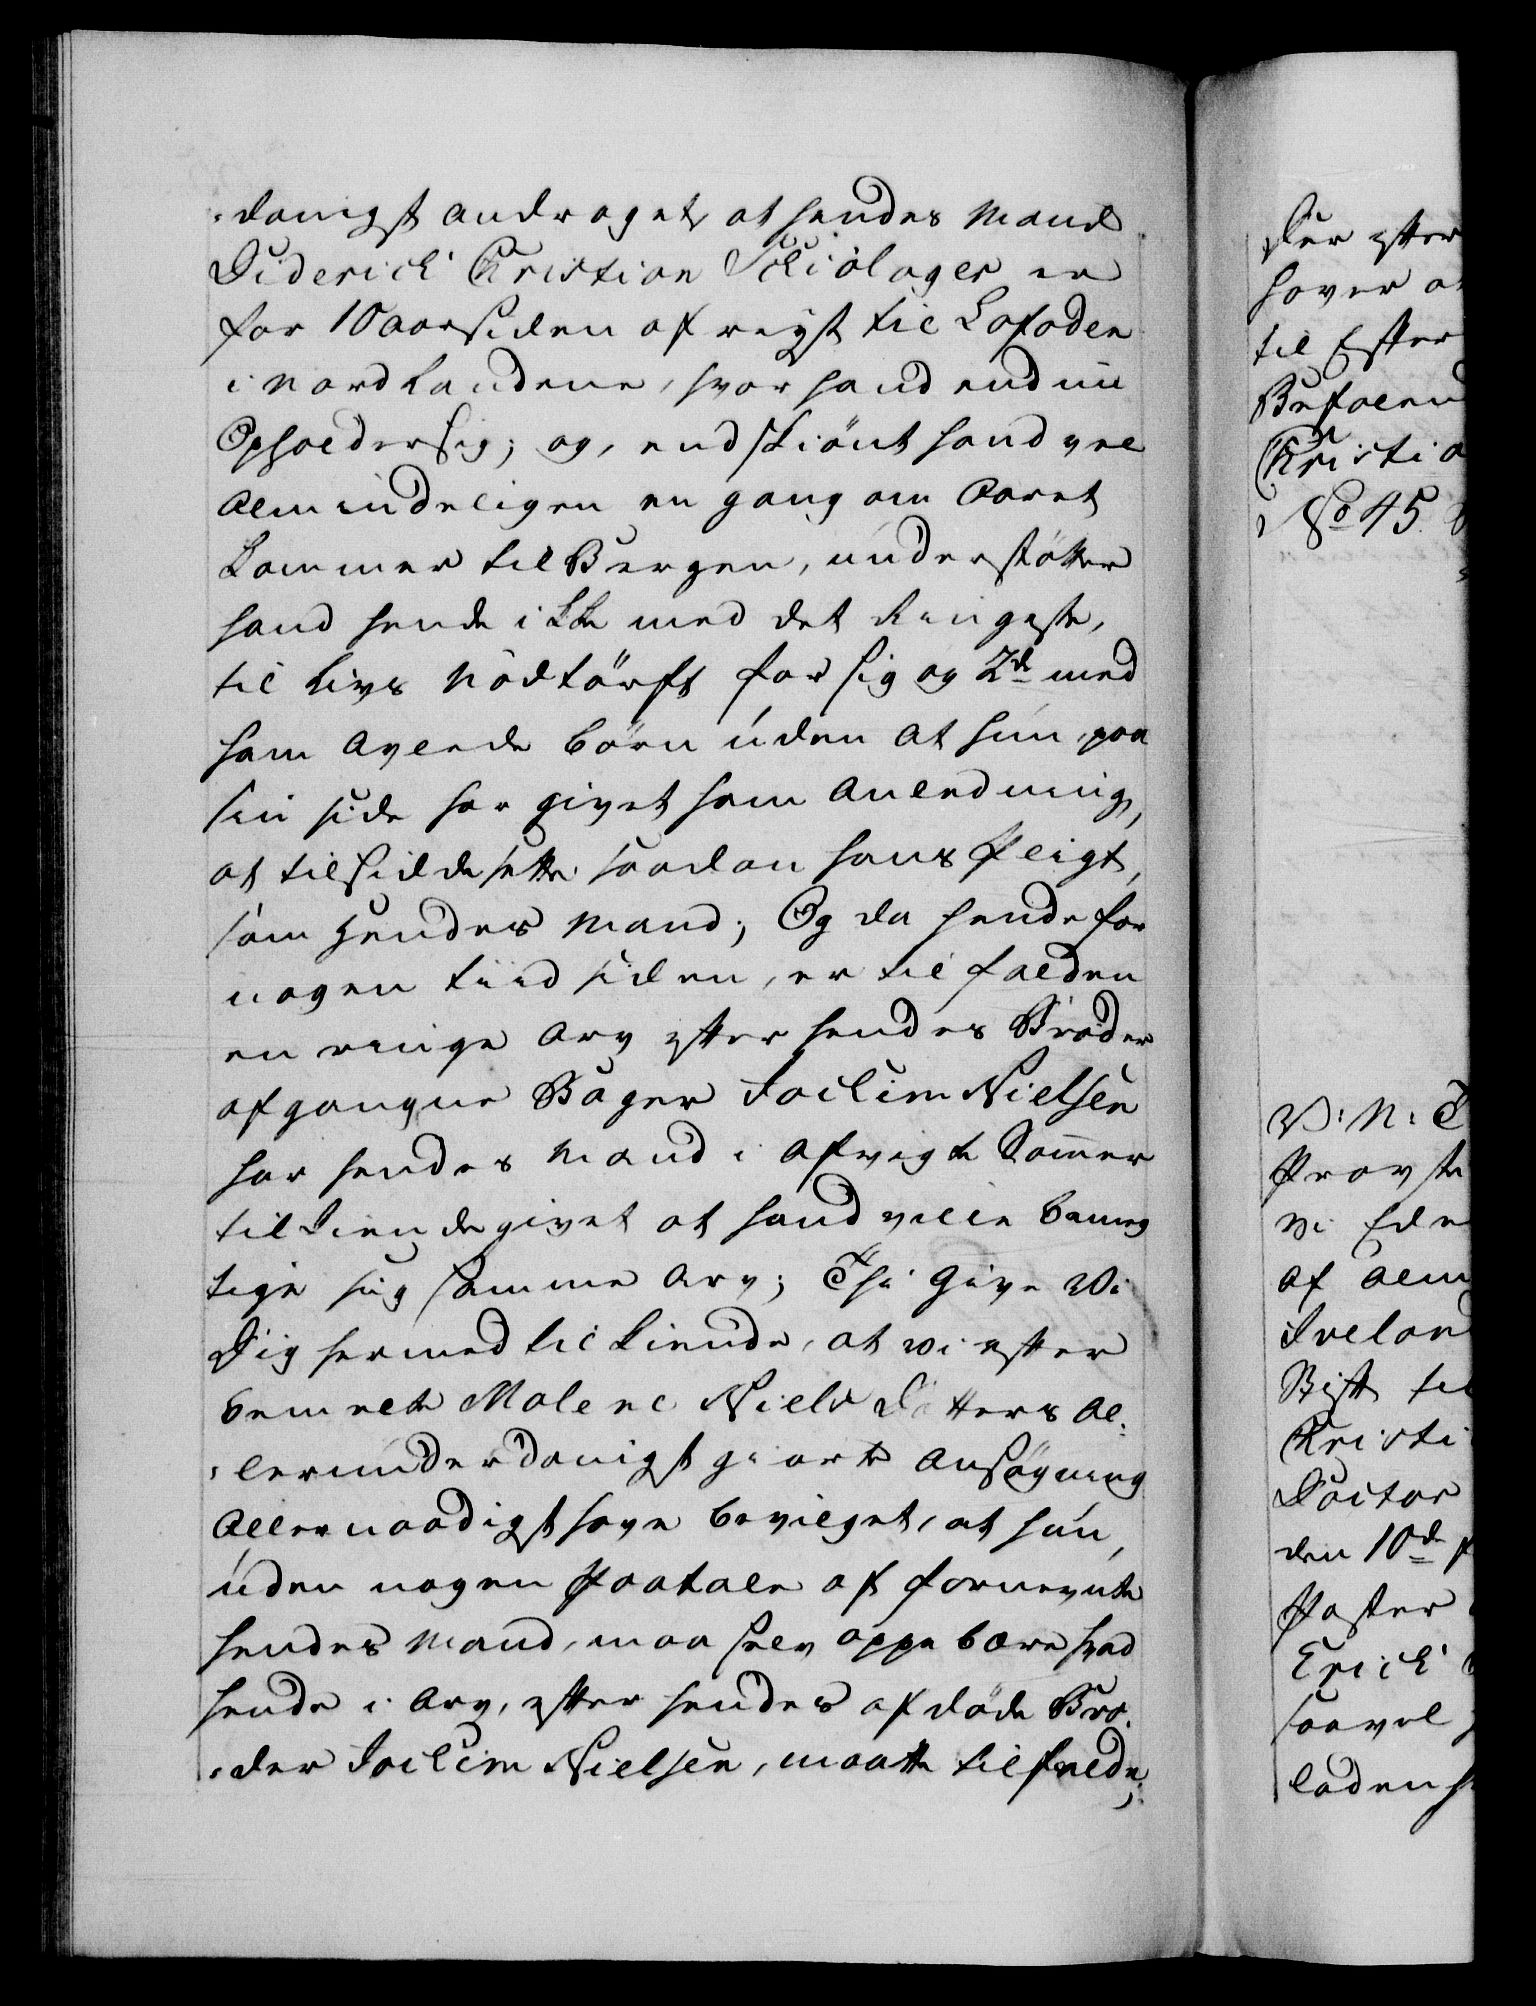 -danigst andraget, at hendes Mand
Diderich Christian Schiölager er
for 10 aar siden afreyst til Lofoden
i Nordlandene, hvor hand endnu
Opholder sig; og, endskiönt hand vel
Almindeligen en gang om Aaret
kommer til Bergen, understötter
hand hende ikke med det Ringeste,
til Livs Nödtörft for sig og 2de med
ham Avlede börn uden at hun paa
sin side har givet ham Anledning,
at tilsidesette saadan hans Pligt,
som hendes Mand; Og da hende for
nogen tiid siden, er tilfalden
en ringe Arv efter hendes Broder
afgangne Bager Jochim Nielsen
har hendes Mand i Afvigte Sommer
tilkiendegivet at hand ville bemeg
tige sig samme Arv; Thi Give Wi
Dig hermed til kiende, at wi efter
bemelte Malene Niels Datters Al-
-lerunderdanigst giorte Ansögning
Allernaadigst have bevilget, at hun,
uden nogen Paatale af fornevnte
hendes Mand, maa selv oppebære hvad
hende i Arv, efter hendes afdöde Bro-
-der Jochim Nielsen, maatte tilfalde;
Der efter
haver a
til Efter
Befalend
Christia
No 45
V: N: T
Provste
Wi Ede
Af Alm
Iveland
Bist til
Christi
Doctor
den 10de
Pastor
Erich
saavel
laden